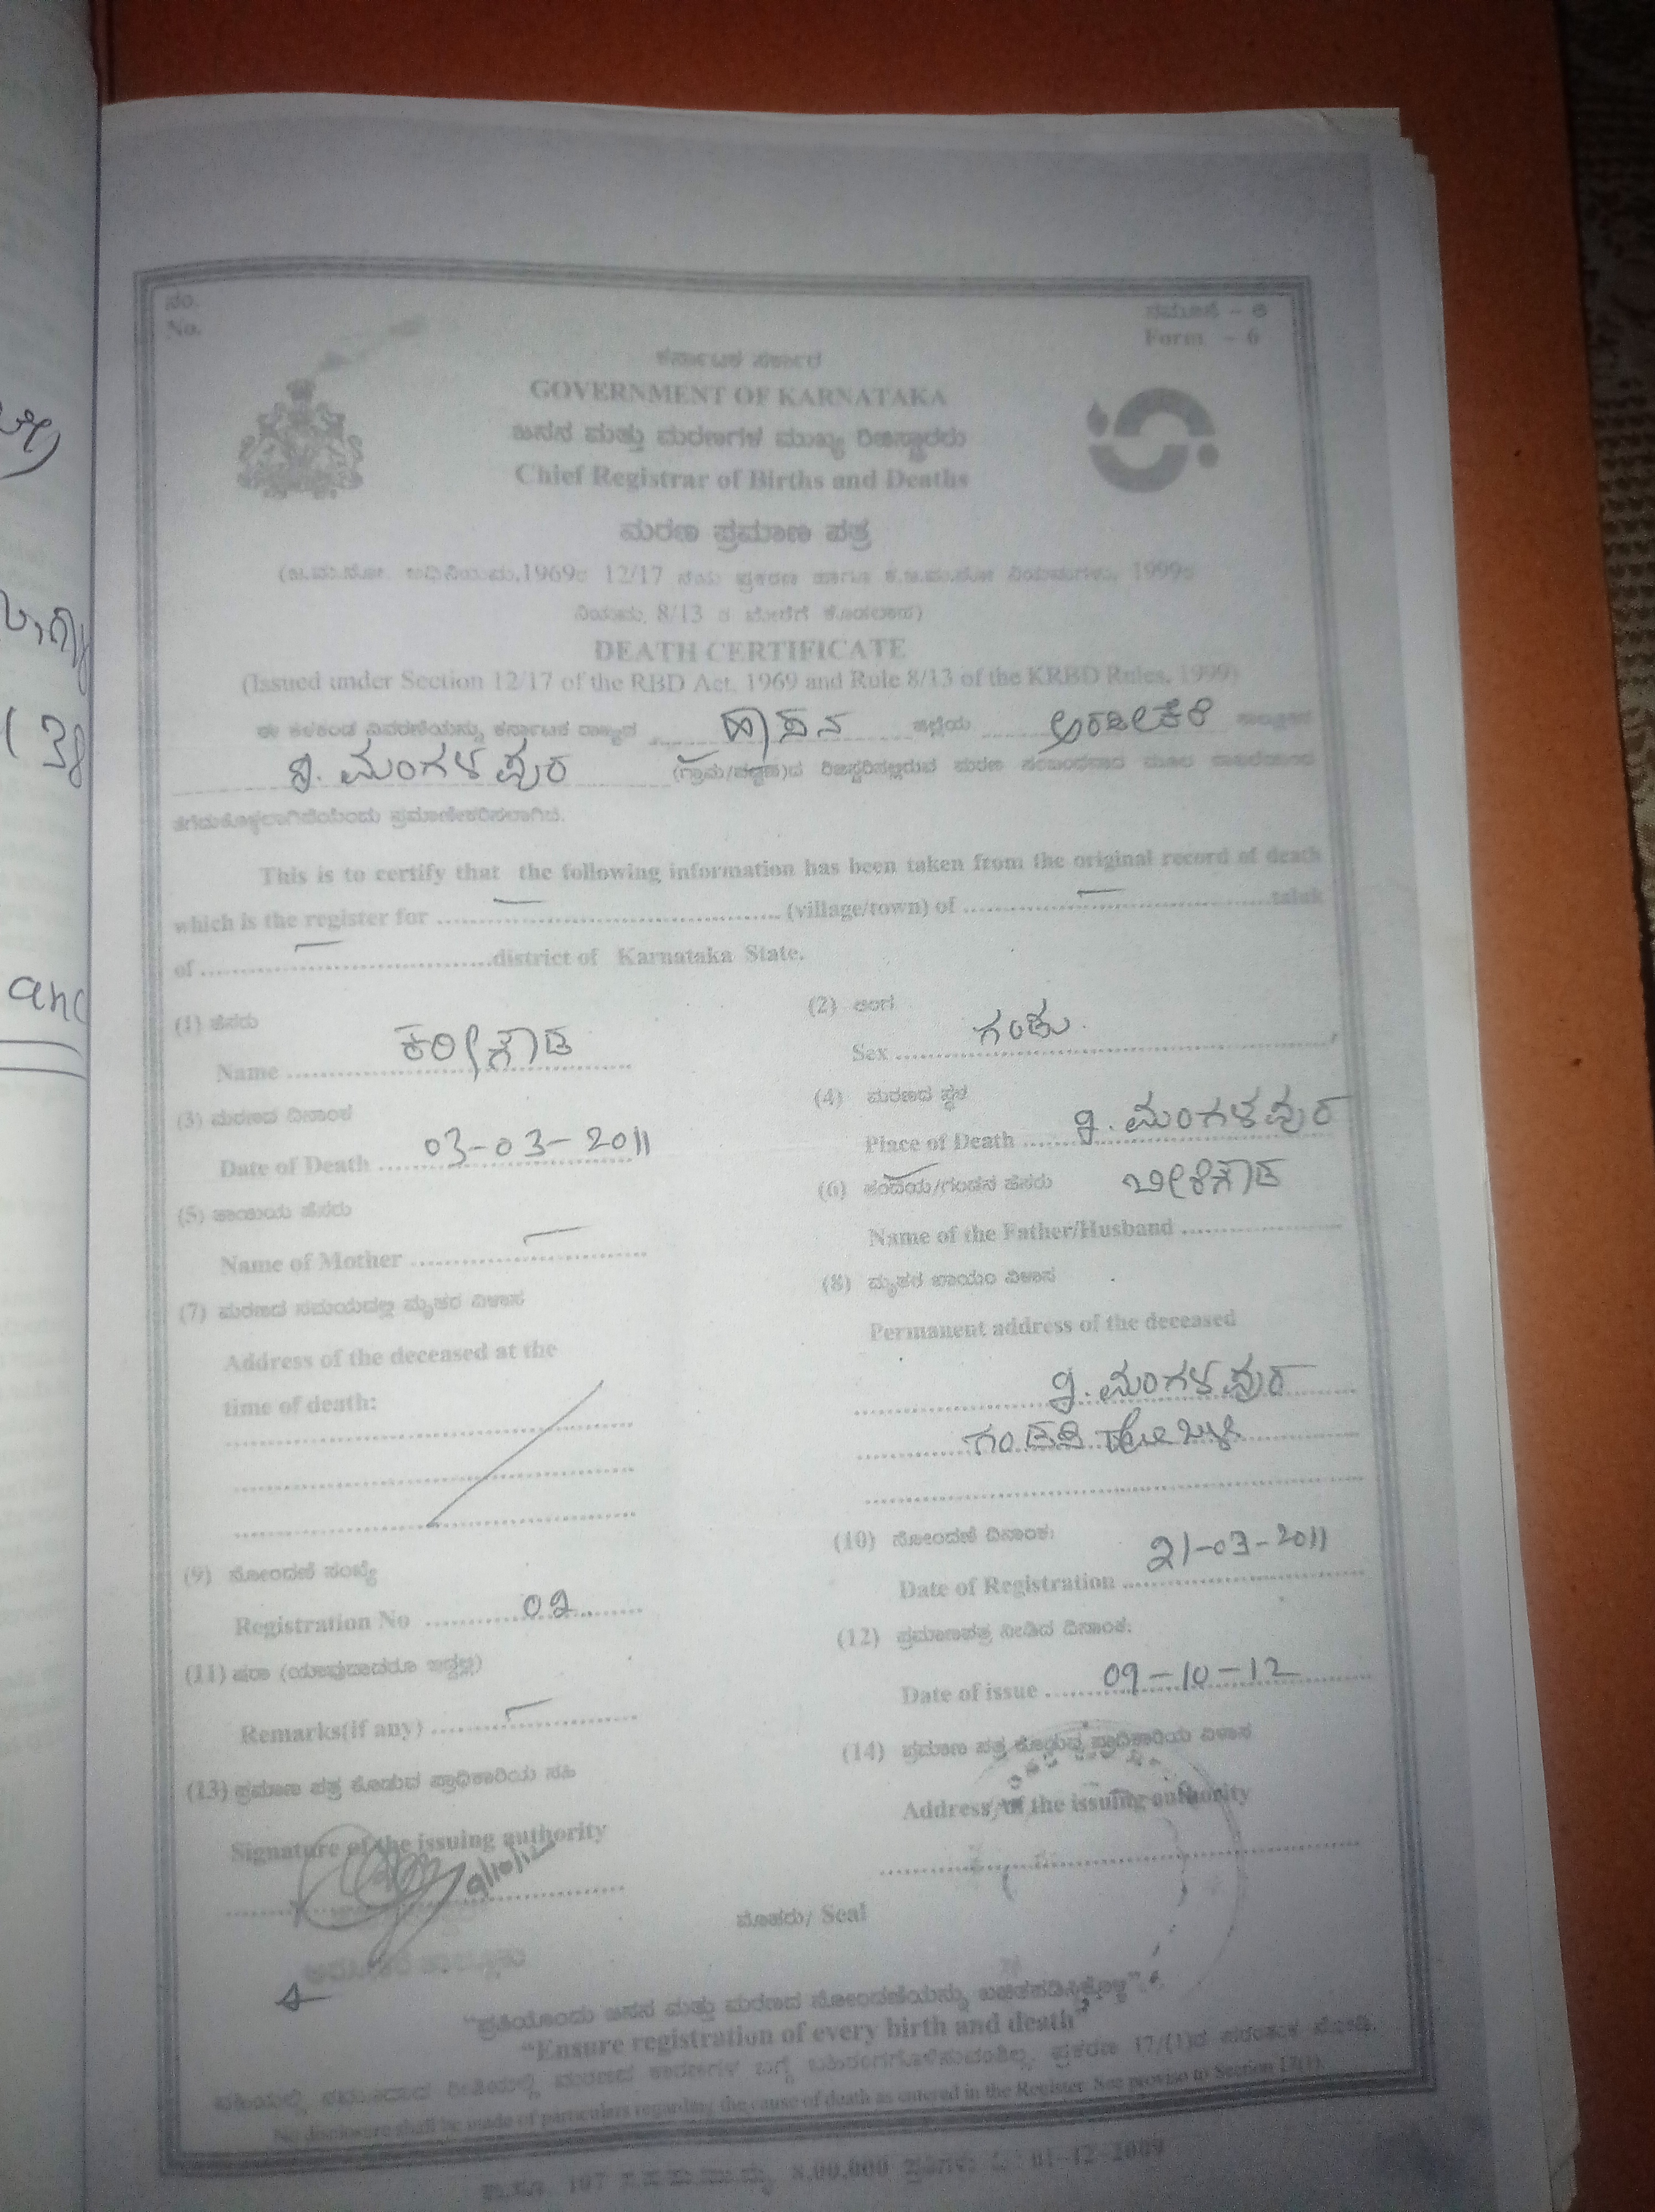 ನಂ.
No.
ನಮೂನೆ - 6
Form - 6
ಕರ್ನಾಟಕ ಸರ್ಕಾರ
GOVERNMENT OF KARNATAKA
ಜನನ ಮತ್ತು ಮರಣಗಳ ಮುಖ್ಯ ರಿಜಿಸ್ಟ್ರಾರರು
Chief Registrar of Births and Deaths
ಮರಣ ಪ್ರಮಾಣ ಪತ್ರ
(ಜ.ಮ.ನೋ. ಅಧಿನಿಯಮ,1969ರ 12/17 ನೆಯ ಪ್ರಕರಣ ಹಾಗೂ ಕ.ಜ.ಮ.ನೋ ನಿಯಮಗಳು, 1999ರ
ನಿಯಮ, 8/13 ರ ಮೇರೆಗೆ ಕೊಡಲಾದ)
DEATH CERTIFICATE
(Issued under Section 12/17 of the RBD Act, 1969 and Rule 8/13 of the KRBD Rules, 1999)
ಈ ಕೆಳಕಂಡ ವಿವರಣೆಯನ್ನು ಕರ್ನಾಟಕ ರಾಜ್ಯದ ಹಾಸನ ಜಿಲ್ಲೆಯ ಅರಸೀಕೆರೆ ತಾಲ್ಲೂಕಿನ
ಮಂಗಳಪುರ (ಗ್ರಾಮ/ಪಟ್ಟಣ)ದ ರಿಜಿಸ್ಟರಿನಲ್ಲಿರುವ ಮರಣ ಸಂಬಂಧವಾದ ಮೂಲ ದಾಖಲೆಯಿಂದ
ತೆಗೆದುಕೊಳ್ಳಲಾಗಿದೆಯೆಂದು ಪ್ರಮಾಣೀಕರಿಸಲಾಗಿದೆ.
This is to certify that the following information has been taken from the original record of death
which is the register for – (village/town) of – taluk
of – district of Karnataka State.
(1) ಹೆಸರು
Name ಕರೀಗೌಡ
(2) ಲಿಂಗ
Sex ಗಂಡು
(3) ಮರಣದ ದಿನಾಂಕ
Date of Death 03-03-2011
(4) ಮರಣದ ಸ್ಥಳ
Place of Death ಮಂಗಳಪುರ
(5) ತಾಯಿಯ ಹೆಸರು
Name of Mother –
(6) ತಂದೆಯ/ಗಂಡನ ಹೆಸರು
Name of the Father/Husband
(7) ಮರಣದ ಸಮಯದಲ್ಲಿ ಮೃತರ ವಿಳಾಸ
Address of the deceased at the
time of death:
(8) ಮೃತರ ಖಾಯಂ ವಿಳಾಸ
Permanent address of the deceased
ಮಂಗಳಪುರ
ಗಂಡಸಿ ಹೋಬಳಿ
(9) ನೋಂದಣಿ ಸಂಖ್ಯೆ
Registration No 02
(10) ನೋಂದಣಿ ದಿನಾಂಕ:
Date of Registration 21-03-2011
(11) ಷರಾ (ಯಾವುದಾದರೂ ಇದ್ದಲ್ಲಿ)
Remarks(if any) –
(12) ಪ್ರಮಾಣಪತ್ರ ನೀಡಿದ ದಿನಾಂಕ:
Date of issue 09-10-12
(13) ಪ್ರಮಾಣ ಪತ್ರ ಕೊಡುವ ಪ್ರಾಧಿಕಾರಿಯ ಸಹಿ
Signature of the issuing authority
9/10/12
(14) ಪ್ರಮಾಣ ಪತ್ರ ಕೊಡುವ ಪ್ರಾಧಿಕಾರಿಯ ವಿಳಾಸ
Address of the issuing authority
ಮೊಹರು/ Seal
"ಪ್ರತಿಯೊಂದು ಜನನ ಮತ್ತು ಮರಣದ ನೋಂದಣಿಯನ್ನು ಖಚಿತಪಡಿಸಿಕೊಳ್ಳಿ"
"Ensure registration of every birth and death"
No disclosure shall be made of particulars regarding the cause of death as entered in the Register. See proviso to Section 17(1).
8,00,000 01-12-2009
and